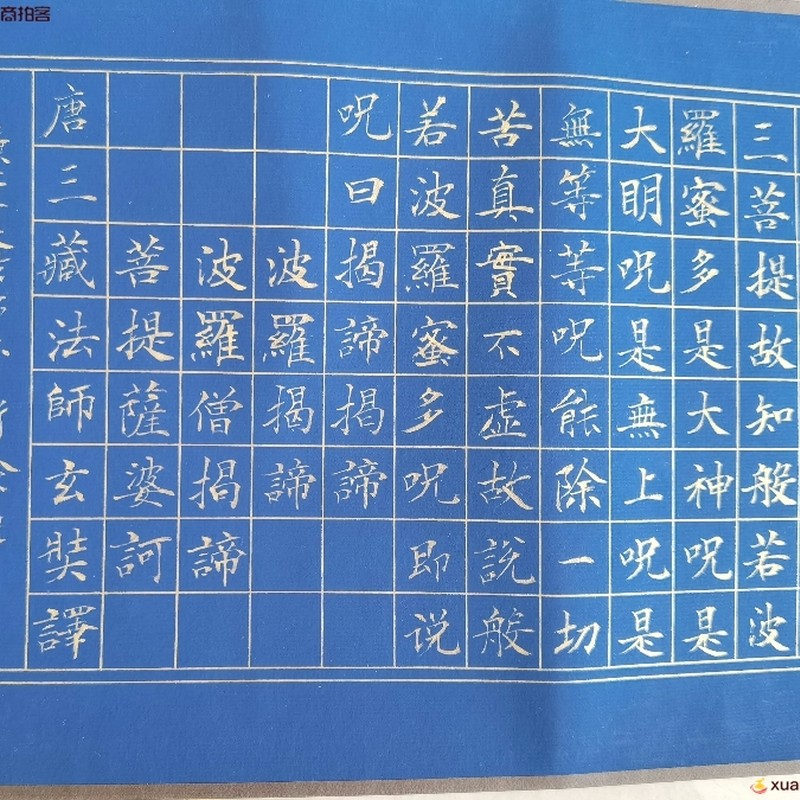 三菩提故知般若波
羅蜜多是大神呪是
大明呪是無上呪是
無等等呪能除一切
苦真實不虛故說般
若波羅蜜多呪即说
呪曰揭諦揭諦
波羅揭諦
波羅僧揭諦
菩提薩婆訶
唐三藏法師玄奘譯
商拍客
xua